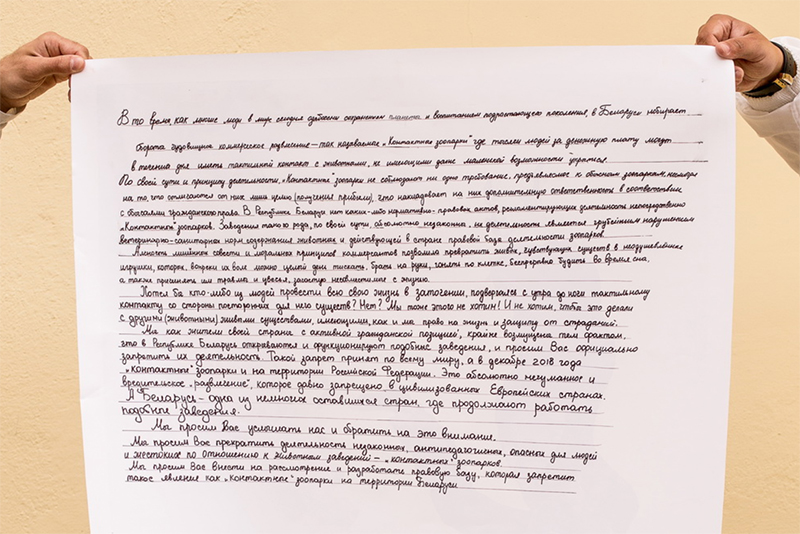 В то время, как многие люди в мире сегодня озабочены сохранением планеты и воспитанием подрастающего поколения, в Беларуси набирает
обороты чудовищное коммерческое развлечение – так называемые „Контактные зоопарки" где толпы людей за денежную плату могут
в течении дня иметь тактильный контакт с животными, не имеющими даже малейшей возможности укрыться.
По своей сути и принципу деятельности, „Контактные" зоопарки не соблюдают ни одно требование, предъявляемое к обычным зоопаркам, несмотря
на то, что отличаются от них лишь целью (получения прибыли), что накладывает на них дополнительную ответственность в соответствии
с объектами гражданского права. В Республике Беларусь нет каких-либо нормативно-правовых актов, регламентирующих деятельность непосредственно
„Контактных" зоопарков. Заведения такого рода, по своей сути абсолютно незаконны, их деятельность является грубейшим нарушением
ветеринарно-санитарных норм содержания животных и действующей в стране правовой базы деятельности зоопарков.
Алчность лишённых совести и моральных принципов коммерсантов позволила превратить живых, чувствующих существ в неодушевлённые
игрушки, которых, вопреки их воле можно целый день тискать, брать на руки, гонять по клетке, беспрерывно будить во время сна,
а также причинять им травмы и увечья, зачастую несовместимые с жизнью.
Хотел бы кто-либо из людей провести всю свою жизнь в заточении, подвергаясь с утра до ночи тактильному
контакту со стороны посторонних для него существ? Нет! Мы тоже этого не хотим! И не хотим, чтобы это делали
с другими (животными) живыми существами, имеющими, как и мы право на жизнь и защиту от страданий.
Мы как жители своей страны с активной гражданской позицией, крайне возмущены тем фактом,
что в Республике Беларусь открываются и функционируют подобные заведения, и просим Вас официально
запретить их деятельность. Такой запрет принят по всему миру, а в декабре 2018 года
„Контактные" зоопарки и на территории Российской Федерации. Это абсолютно негуманное и
вредительское „развлечение", которое давно запрещено в цивилизованных Европейских странах.
А Беларусь – одна из немногих оставшихся стран, где продолжают работать
подобные заведения.
Мы просим Вас услышать нас и обратить на это внимание.
Мы просим Вас прекратить деятельность незаконных, антипедагогичных, опасных для людей
и жестоких по отношению к животным заведений – „контактных" зоопарков.
Мы просим Вас внести на рассмотрение и разработать правовую базу, которая запретит
такое явление как „Контактные" зоопарки на территории Беларуси